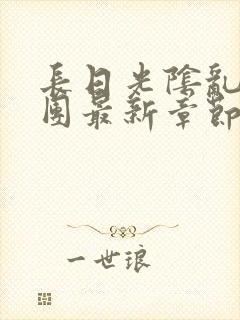 長日光陰亂
團最新章節
一世琅